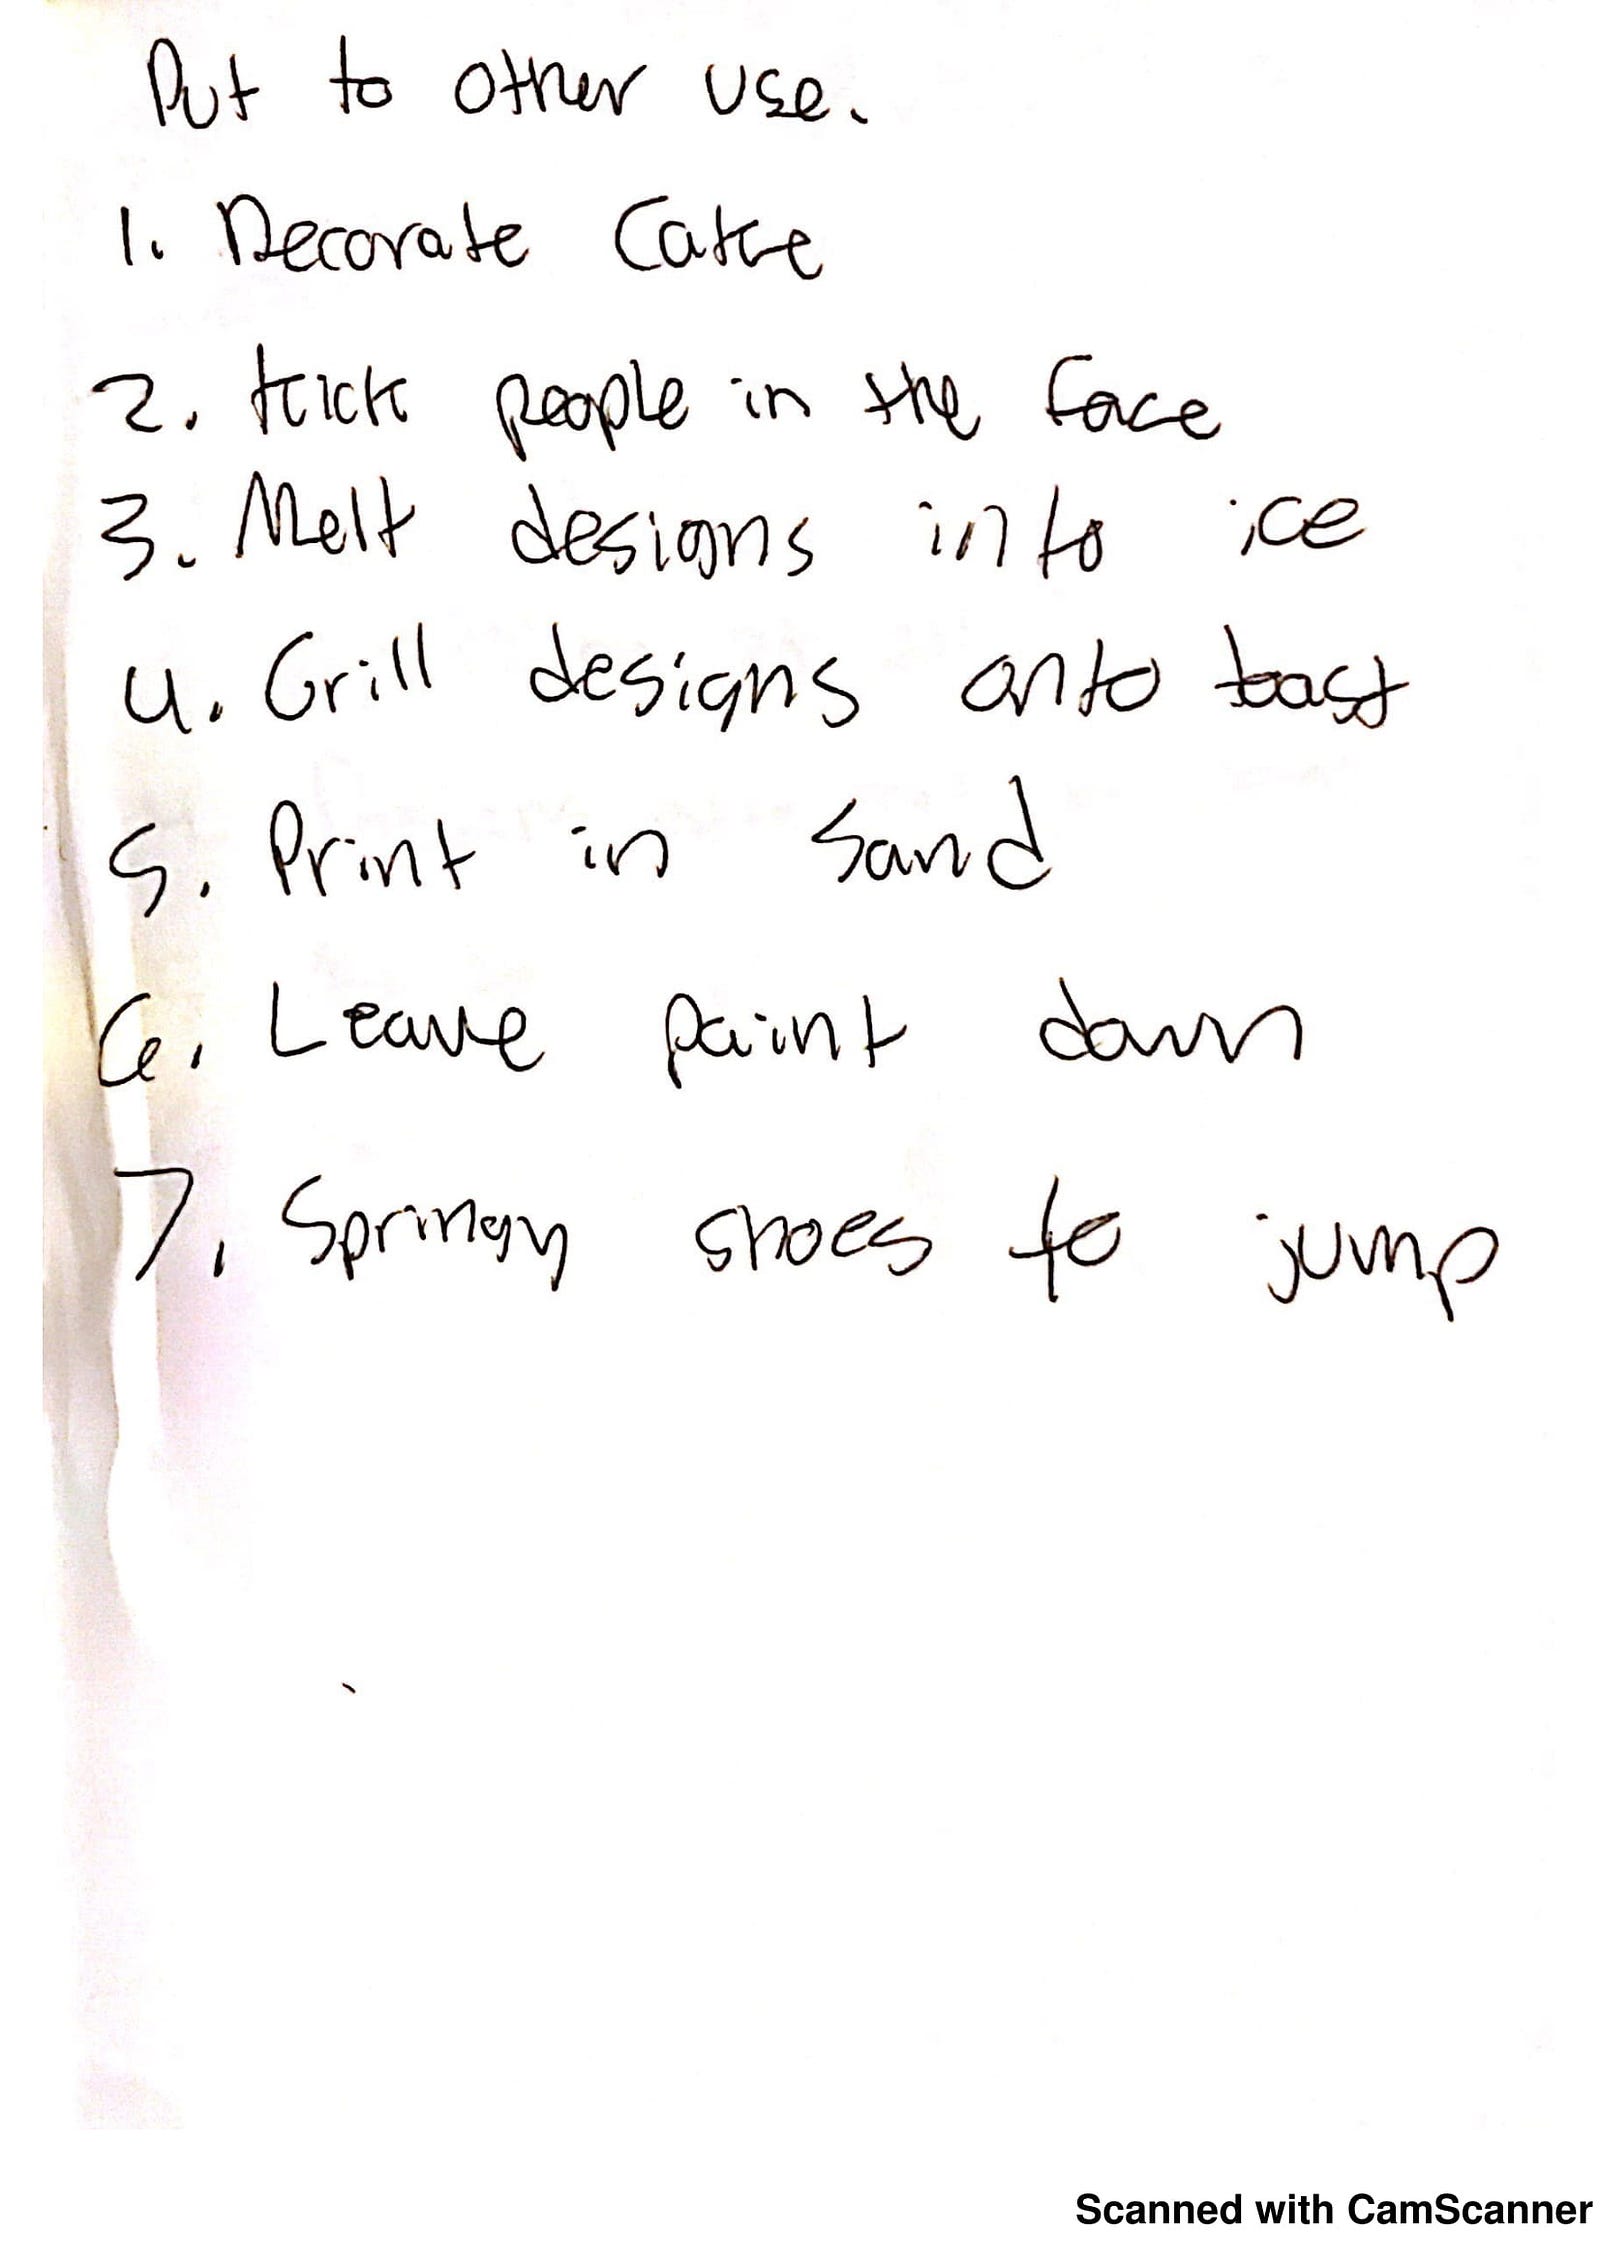 Put to other use.
1. Decorate Cake
2. kick people in the face
3. Melt designs into ice
4. Grill designs onto toast
5. Print in sand
6. Leave paint down
7. Springy shoes to jump
Scanned with CamScanner